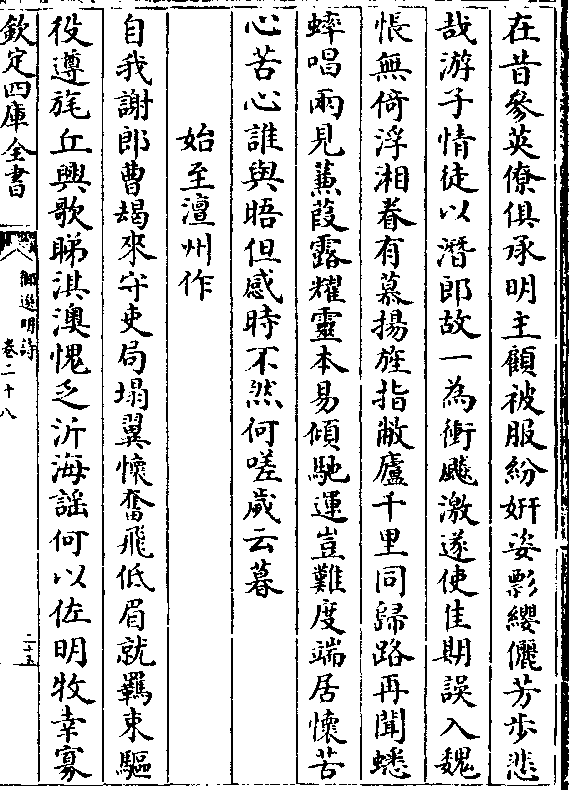 在昔參英僚俱承明主顧被服紛妍姿影纓儷芳步悲
哉游子情徒以潛郎故一為衝飈激遂使佳期誤入魏
悵無倚浮湘眷有慕揚旌指敝廬千里同歸路再聞蟋
蟀唱兩見蒹葭露耀靈本易傾馳運豈難度端居懷苦
心苦心誰與晤但感時不然何嗟歲云暮
始至澶州作
自我謝郎曹朅來守吏局塌翼懷奮飛低眉就羈束驅
役遵旄丘興歌睇淇澳愧乏沂海謠何以佐明牧幸寡
欽定四庫全書
御選明詩
卷二十八
二十五